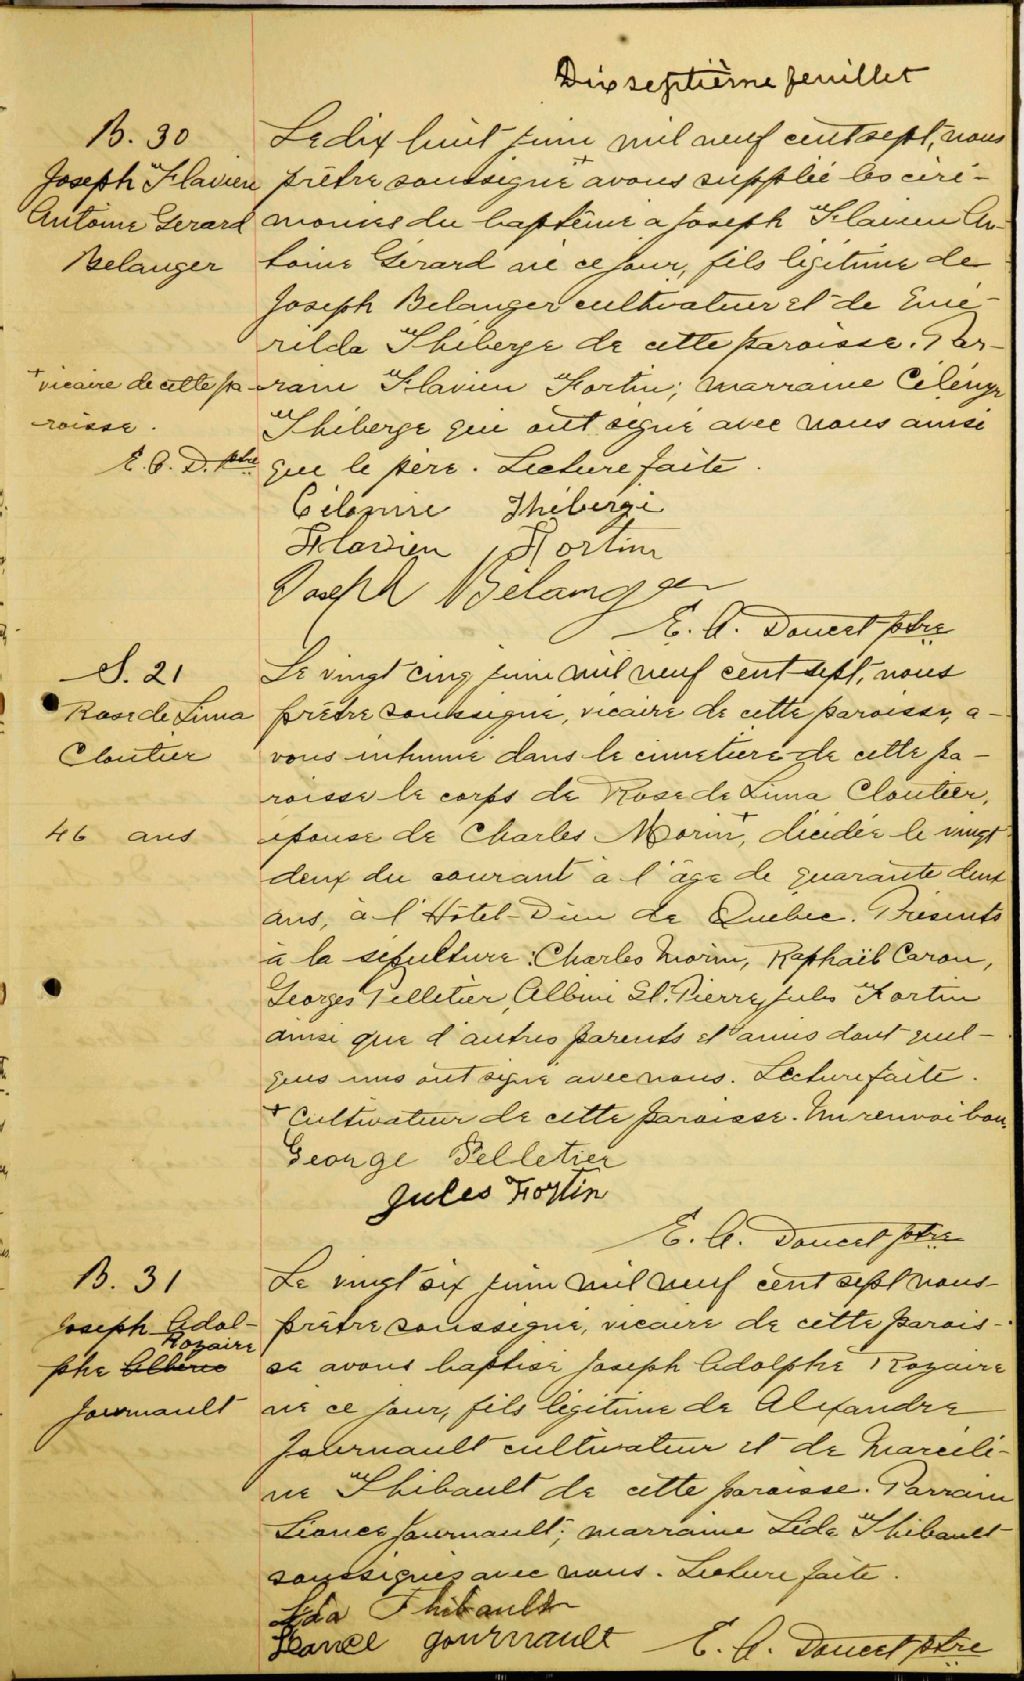 Dix septième feuillet
B. 30
Joseph Flavien
Antoine Gerard
Belanger
+ vicaire de cette pa-
roisse.
E. A. D. ptre
Le dix huit juin mil neuf cent sept, nous
prêtre soussigné + avons supplié les céré-
monies du baptême à Joseph Flavien An-
toine Gérard né ce jour, fils légitime de
Joseph Belanger cultivateur et de Emé-
rilda Théberge de cette paroisse. Par-
rain Flavien Fortin; marraine Célénire
Théberge qui ont signé avec nous ainsi
que le père. Lecture faite.
Thébergé
Flavien Fortin
Joseph Bélanger
E. A. Doucet ptre
S. 21
Rose de Lima
Cloutier
46 ans
Le vingt cinq juin mil neuf cent sept, nous
prêtre soussigné, vicaire de cette paroisse, a-
vons inhumé dans le cimetière de cette pa-
roisse le corps de Rose de Lima Cloutier,
épouse de Charles Morin +, décédée le vingt
deux du courant à l'âge de quarante deux
ans, à l'Hôtel-Dieu de Québec. Présents
à la sépulture: Charles Morin, Raphaël Caron,
Georges Pelletier, Albini St. Pierre, Jules Fortin
ainsi que d'autres parents et amis dont quel-
ques uns ont signé avec nous. Lecture faite.
+ Cultivateur de cette paroisse. Un renvoi bon.
George Pelletier
Jules Fortin
E. A. Doucet ptre
B. 31
Joseph Adol-
Rozaire
phe Albéric
Journault
Le vingt six juin mil neuf cent sept nous
prêtre soussigné, vicaire de cette parois-
se avons baptisé Joseph Adolphe Rozaire
né ce jour, fils légitime de Alexandre
Journault cultivateur et de Marceli-
ne Thibault de cette paroisse. Parrain
Léonce Journault; marraine Léda Thibault
soussignés avec nous. Lecture faite.
Léda Thibault
Léonce Journault
E. A. Doucet ptre